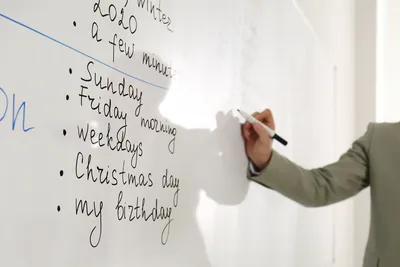 winter
2020
• a few minut
• Sunday
• Friday morning
on
• weekdays
• Christmas day
• my birthday